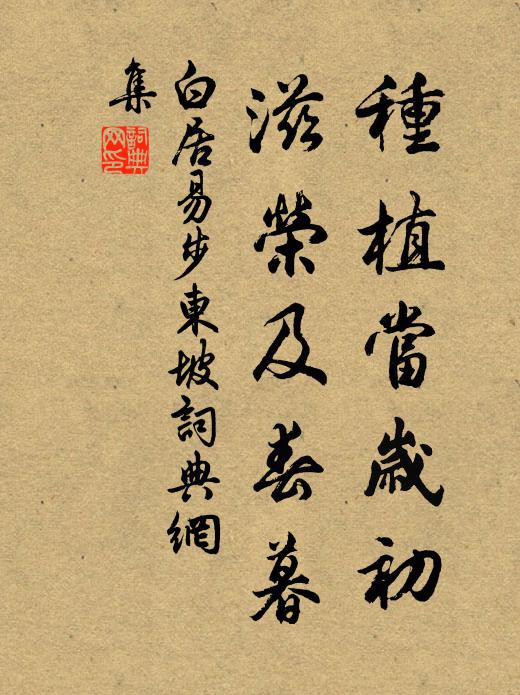 種植當歲初
滋榮及春暮
白居易步東坡詞典網
集
詞典網印